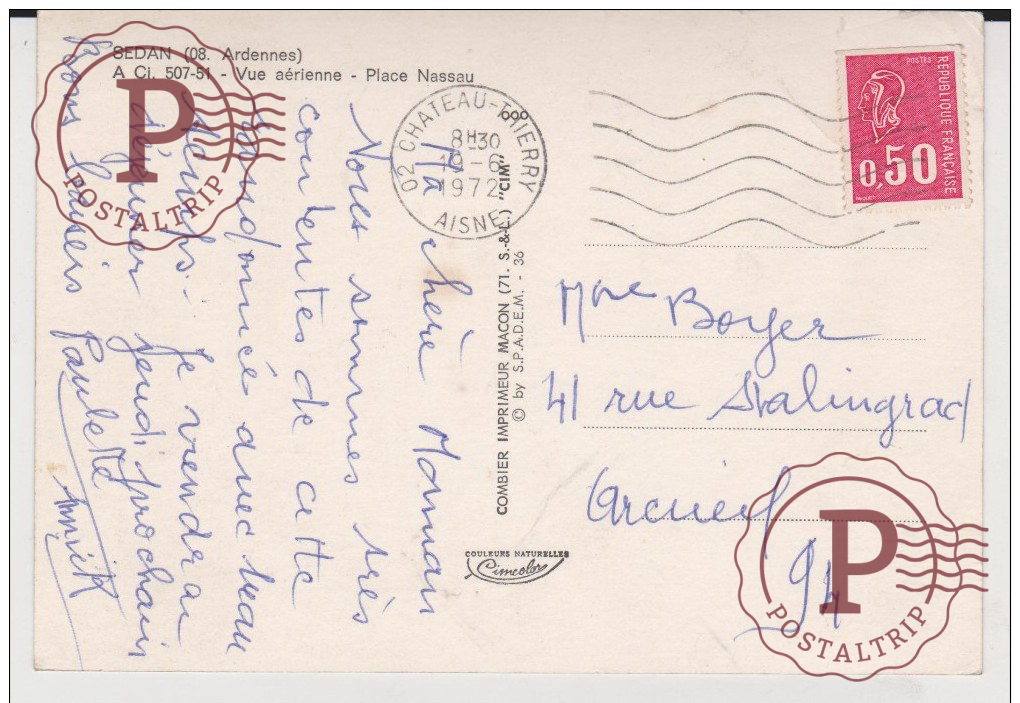 SEDAN (08. Ardennes)
A Ci. 507-51 - Vue aérienne - Place Nassau
Ma chère Maman
Nous sommes très
contentes de cette
randonnée avec beau
temps. Je viendrai
déjeuner jeudi prochain
Bons baisers Paulette
Annick
02 CHATEAU-THIERRY
8H30
19-6
1972
AISNE
POSTES
RÉPUBLIQUE FRANÇAISE
0,50
COMBIER IMPRIMEUR MACON (71. S.-&-L.) "CIM"
© by S.P.A.D.E.M. - 36
COULEURS NATURELLES
Cimcolor
Mme Boyer
41 rue Stalingrad
Arcueil
94
P
POSTALTRIP
P
POSTALTRIP